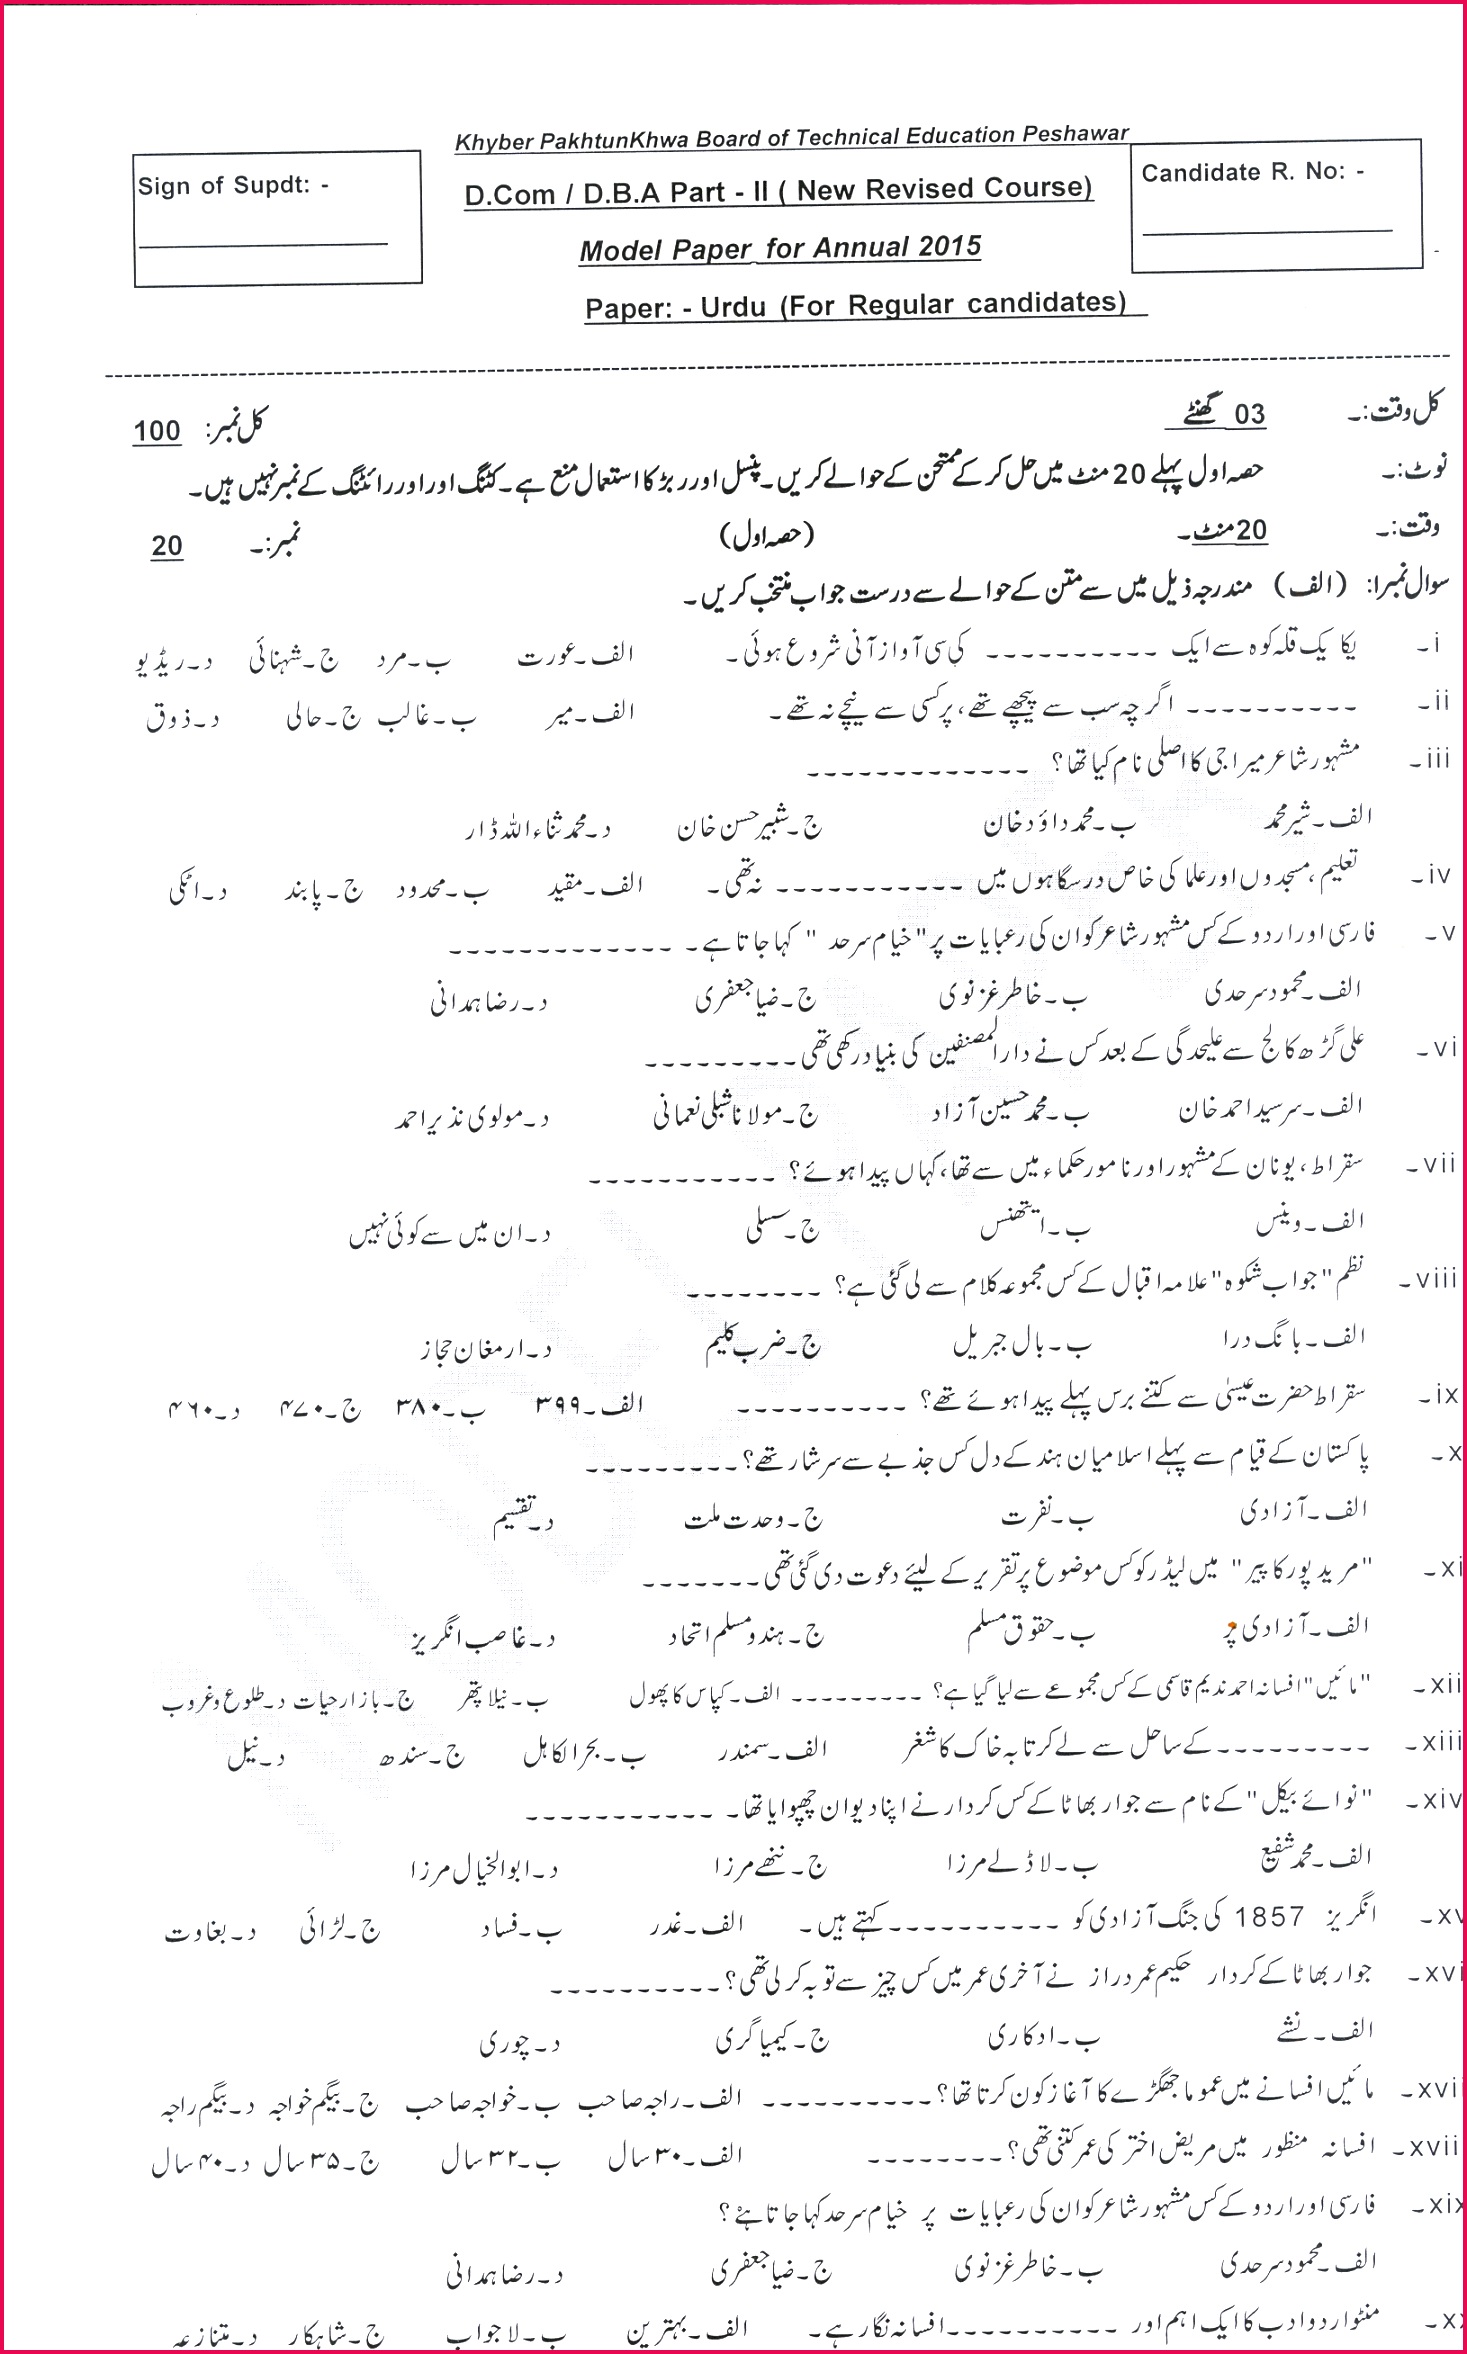 Khyber PakhtunKhwa Board of Technical Education Peshawar
Sign of Supdt: -
Candidate R. No: -
D.Com / D.B.A Part - II ( New Revised Course)
Model Paper for Annual 2015
Paper: - Urdu (For Regular candidates)
کل وقت:۔ 03 گھنٹے کل نمبر: 100
نوٹ:۔ حصہ اول پہلے 20 منٹ میں حل کر کے ممتحن کے حوالے کریں۔ پنسل اور ربڑ کا استعمال منع ہے۔ کٹنگ اور اوررائٹنگ کے نمبر نہیں ہیں۔
وقت:۔ 20 منٹ۔ (حصہ اول) نمبر:۔ 20
سوال نمبر۱: (الف) مندرجہ ذیل میں سے متن کے حوالے سے درست جواب منتخب کریں۔
i۔ یکا یک قلہ کوہ سے ایک ۔۔۔۔۔۔۔۔۔۔ کی سی آواز آنی شروع ہوئی۔ الف۔عورت ب۔مرد ج۔شہنائی د۔ریڈیو
ii۔ ۔۔۔۔۔۔۔۔۔۔ اگر چہ سب سے پیچھے تھے، پر کسی سے نیچے نہ تھے۔ الف۔میر ب۔غالب ج۔حالی د۔ذوق
iii۔ مشہور شاعر میراجی کا اصلی نام کیا تھا؟ ۔۔۔۔۔۔۔۔۔۔۔۔۔
الف۔شیر محمد ب۔محمد داؤد خان ج۔شبیر حسن خان د۔محمد ثناء اللہ ڈار
iv۔ تعلیم، مسجدوں اور علما کی خاص درسگاہوں میں ۔۔۔۔۔۔۔۔۔۔۔ نہ تھی۔ الف۔مقید ب۔محدود ج۔پابند د۔اٹکی
v۔ فارسی اور اردو کے کس مشہور شاعر کو ان کی رعبایات پر "خیام سرحد" کہا جاتا ہے۔ ۔۔۔۔۔۔۔۔۔۔۔۔۔
الف۔محمود سرحدی ب۔خاطر غزنوی ج۔ضیا جعفری د۔رضا ہمدانی
vi۔ علی گڑھ کالج سے علیحدگی کے بعد کس نے دار المصنفین کی بنیاد رکھی تھی۔۔۔۔۔۔۔۔۔
الف۔سر سید احمد خان ب۔محمد حسین آزاد ج۔مولانا شبلی نعمانی د۔مولوی نذیر احمد
vii۔ سقراط، یونان کے مشہور اور نامور حکماء میں سے تھا، کہاں پیدا ہوئے؟ ۔۔۔۔۔۔۔۔۔۔۔
الف۔وینس ب۔ایتھنس ج۔سسلی د۔ان میں سے کوئی نہیں
viii۔ نظم "جواب شکوہ" علامہ اقبال کے کس مجموعہ کلام سے لی گئی ہے؟ ۔۔۔۔۔۔۔۔
الف۔بانگ درا ب۔بال جبریل ج۔ضرب کلیم د۔ارمغان حجاز
ix۔ سقراط حضرت عیسیٰ سے کتنے برس پہلے پیدا ہوئے تھے؟ ۔۔۔۔۔۔۔۔۔۔ الف۔۳۹۹ ب۔۳۸۰ ج۔۴۷۰ د۔۴۶۰
x۔ پاکستان کے قیام سے پہلے اسلامیان ہند کے دل کس جذبے سے سرشار تھے؟۔۔۔۔۔۔۔۔۔
الف۔آزادی ب۔نفرت ج۔وحدت ملت د۔تقسیم
xi۔ "مرید پور کا پیر" میں لیڈر کو کس موضوع پر تقریر کے لیئے دعوت دی گئی تھی۔۔۔۔۔۔۔
الف۔آزادی پر ب۔حقوق مسلم ج۔ہندو مسلم اتحاد د۔غاصب انگریز
xii۔ "مائیں" افسانہ احمد ندیم قاسمی کے کس مجموعے سے لیا گیا ہے؟ ۔۔۔۔۔۔۔۔۔ الف۔کپاس کا پھول ب۔نیلا پتھر ج۔بازار حیات د۔طلوع و غروب
xiii۔ ۔۔۔۔۔۔۔۔۔کے ساحل سے لے کر تا بہ خاک کاشغر الف۔سمندر ب۔بحر الکاہل ج۔سندھ د۔نیل
xiv۔ "نوائے بیکل" کے نام سے جوار بھاٹا کے کس کردار نے اپنا دیوان چھپوایا تھا۔ ۔۔۔۔۔۔۔۔۔۔۔
الف۔محمد شفیع ب۔لاڈلے مرزا ج۔ننھے مرزا د۔ابو الخیال مرزا
xv۔ انگریز 1857 کی جنگ آزادی کو ۔۔۔۔۔۔۔۔۔۔کہتے ہیں۔ الف۔غدر ب۔فساد ج۔لڑائی د۔بغاوت
xvi۔ جوار بھاٹا کے کردار حکیم عمر دراز نے آخری عمر میں کس چیز سے توبہ کر لی تھی؟۔۔۔۔۔۔۔۔۔۔
الف۔نشے ب۔ادکاری ج۔کیمیا گری د۔چوری
xvii۔ مائیں افسانے میں عموما جھگڑے کا آغاز کون کرتا تھا؟۔۔۔۔۔۔۔۔۔۔ الف۔راجہ صاحب ب۔خواجہ صاحب ج۔بیگم خواجہ د۔بیگم راجہ
xvii۔ افسانہ منظور میں مریض اختر کی عمر کتنی تھی؟۔۔۔۔۔۔۔۔ الف۔۳۰ سال ب۔۳۲ سال ج۔۳۵ سال د۔۴۰ سال
xix۔ فارسی اور اردو کے کس مشہور شاعر کو ان کی رعبایات پر خیام سرحد کہا جاتا ہۓ؟
الف۔محمود سرحدی ب۔خاطر غزنوی ج۔ضیا جعفری د۔رضا ہمدانی
xx۔ منٹو اردو ادب کا ایک اہم اور ۔۔۔۔۔۔۔۔۔۔افسانہ نگار ہے۔ الف۔بہترین ب۔لاجواب ج۔شاہکار د۔متنازعہ